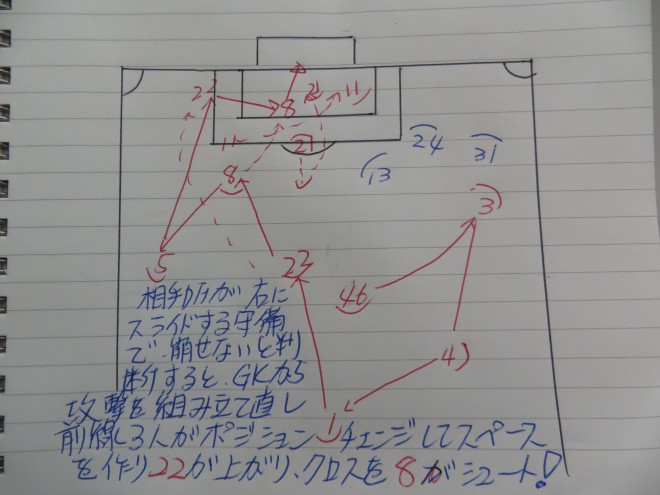 22
8
21
11
11
21
24
31
13
8
3
5
23
46
43
1
相手DFが右に
スライドする守備
で崩せないと判
断すると、GKから
攻撃を組み立て直し
前線3人がポジションチェンジしてスペース
を作り22が上がり、クロスを8がシュート!